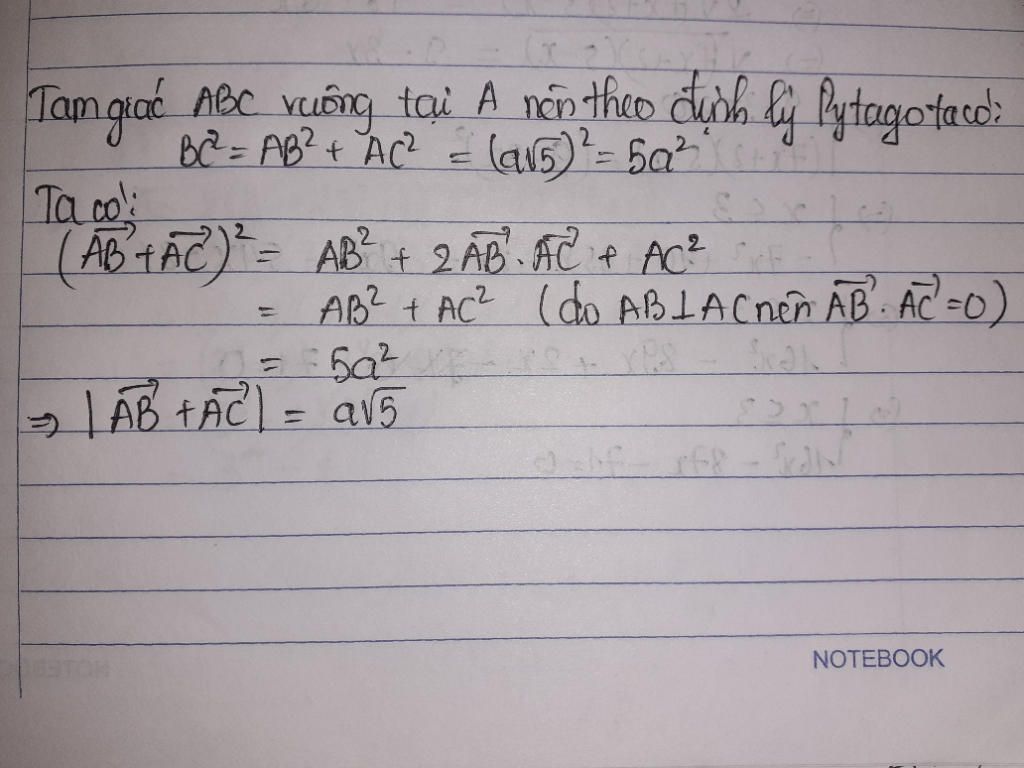 Tam giác ABC vuông tại A nên theo định lý Pytago ta có:
BC² = AB² + AC² = (a√5)² = 5a²
Ta có:
(\overrightarrow{AB} + \overrightarrow{AC})² = AB² + 2\overrightarrow{AB} . \overrightarrow{AC} + AC²
= AB² + AC² (do AB ⊥ AC nên \overrightarrow{AB} . \overrightarrow{AC} = 0)
= 5a²
⇒ |\overrightarrow{AB} + \overrightarrow{AC}| = a√5
NOTEBOOK